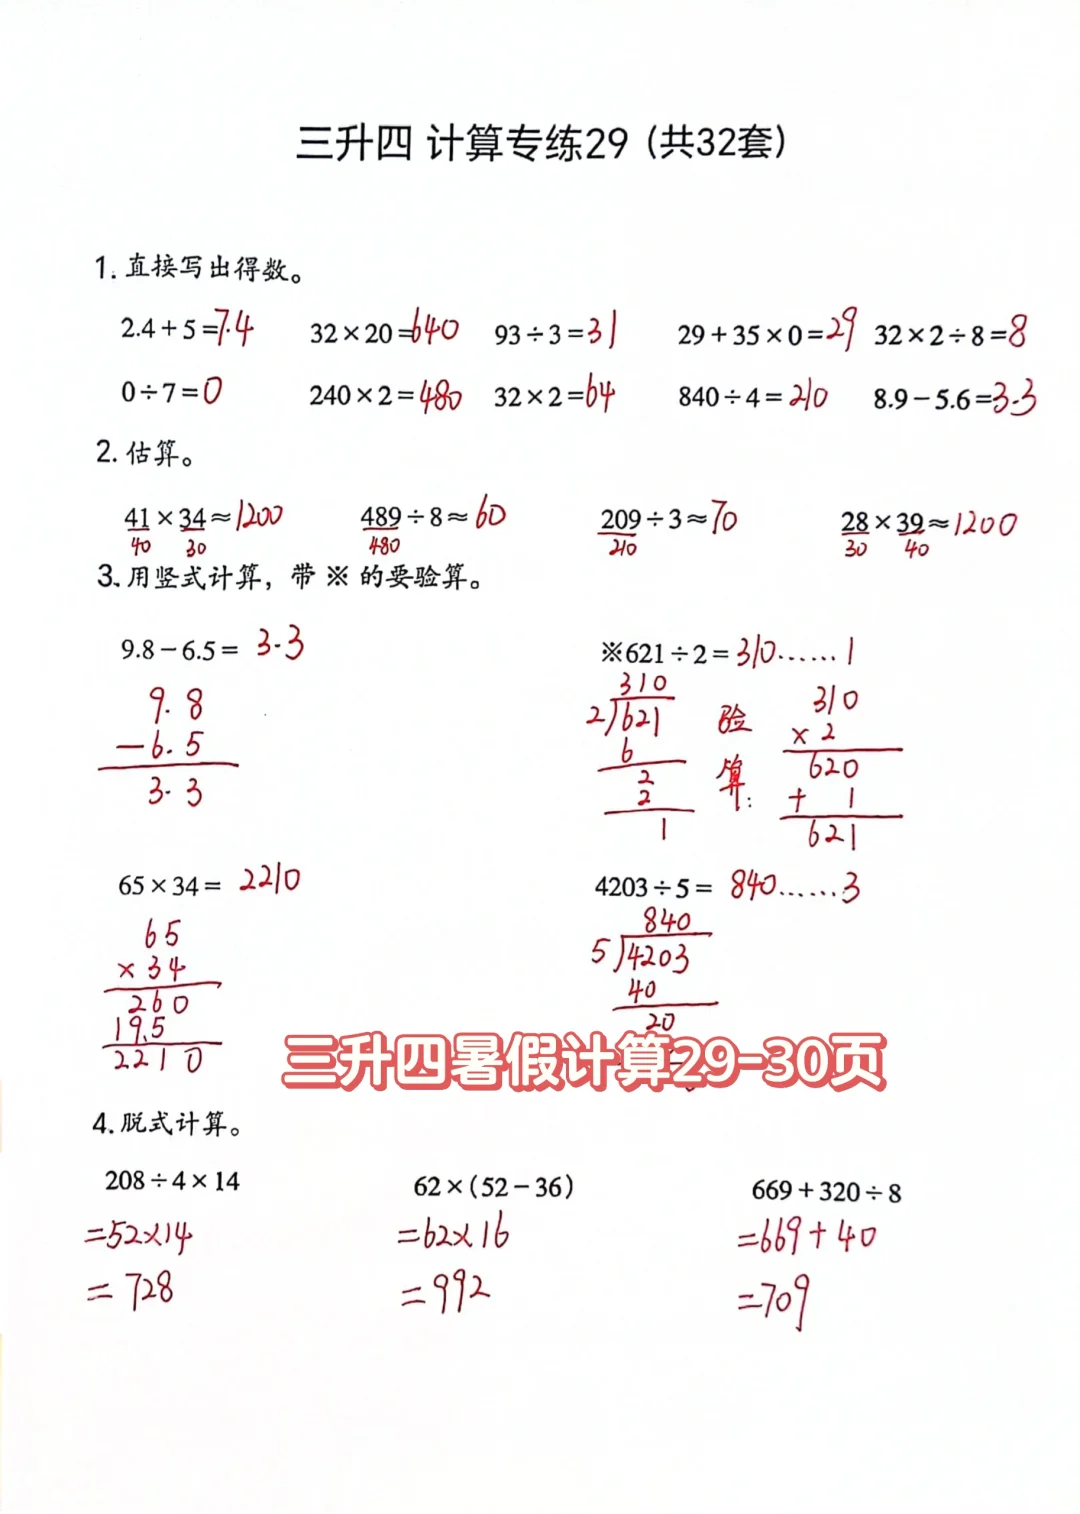 三升四 计算专练29（共32套）
1. 直接写出得数。
2.4+5=7.4 32×20=640 93÷3=31 29+35×0=29 32×2÷8=8
0÷7=0 240×2=480 32×2=64 840÷4=210 8.9-5.6=3.3
2. 估算。
41×34≈1200 489÷8≈60 209÷3≈70 28×39≈1200
40 30 480 210 30 40
3. 用竖式计算，带 ※ 的要验算。
9.8-6.5= 3.3
9.8
-6.5
3.3
※621÷2=310……1
310
2)621
6
2
2
1
验算:
310
×2
620
+ 1
621
65×34= 2210
65
×34
260
195
2210
4203÷5= 840……3
840
5)4203
40
20
三升四暑假计算29-30页
4. 脱式计算。
208÷4×14 62×(52-36) 669+320÷8
=52×14 =62×16 =669+40
=728 =992 =709